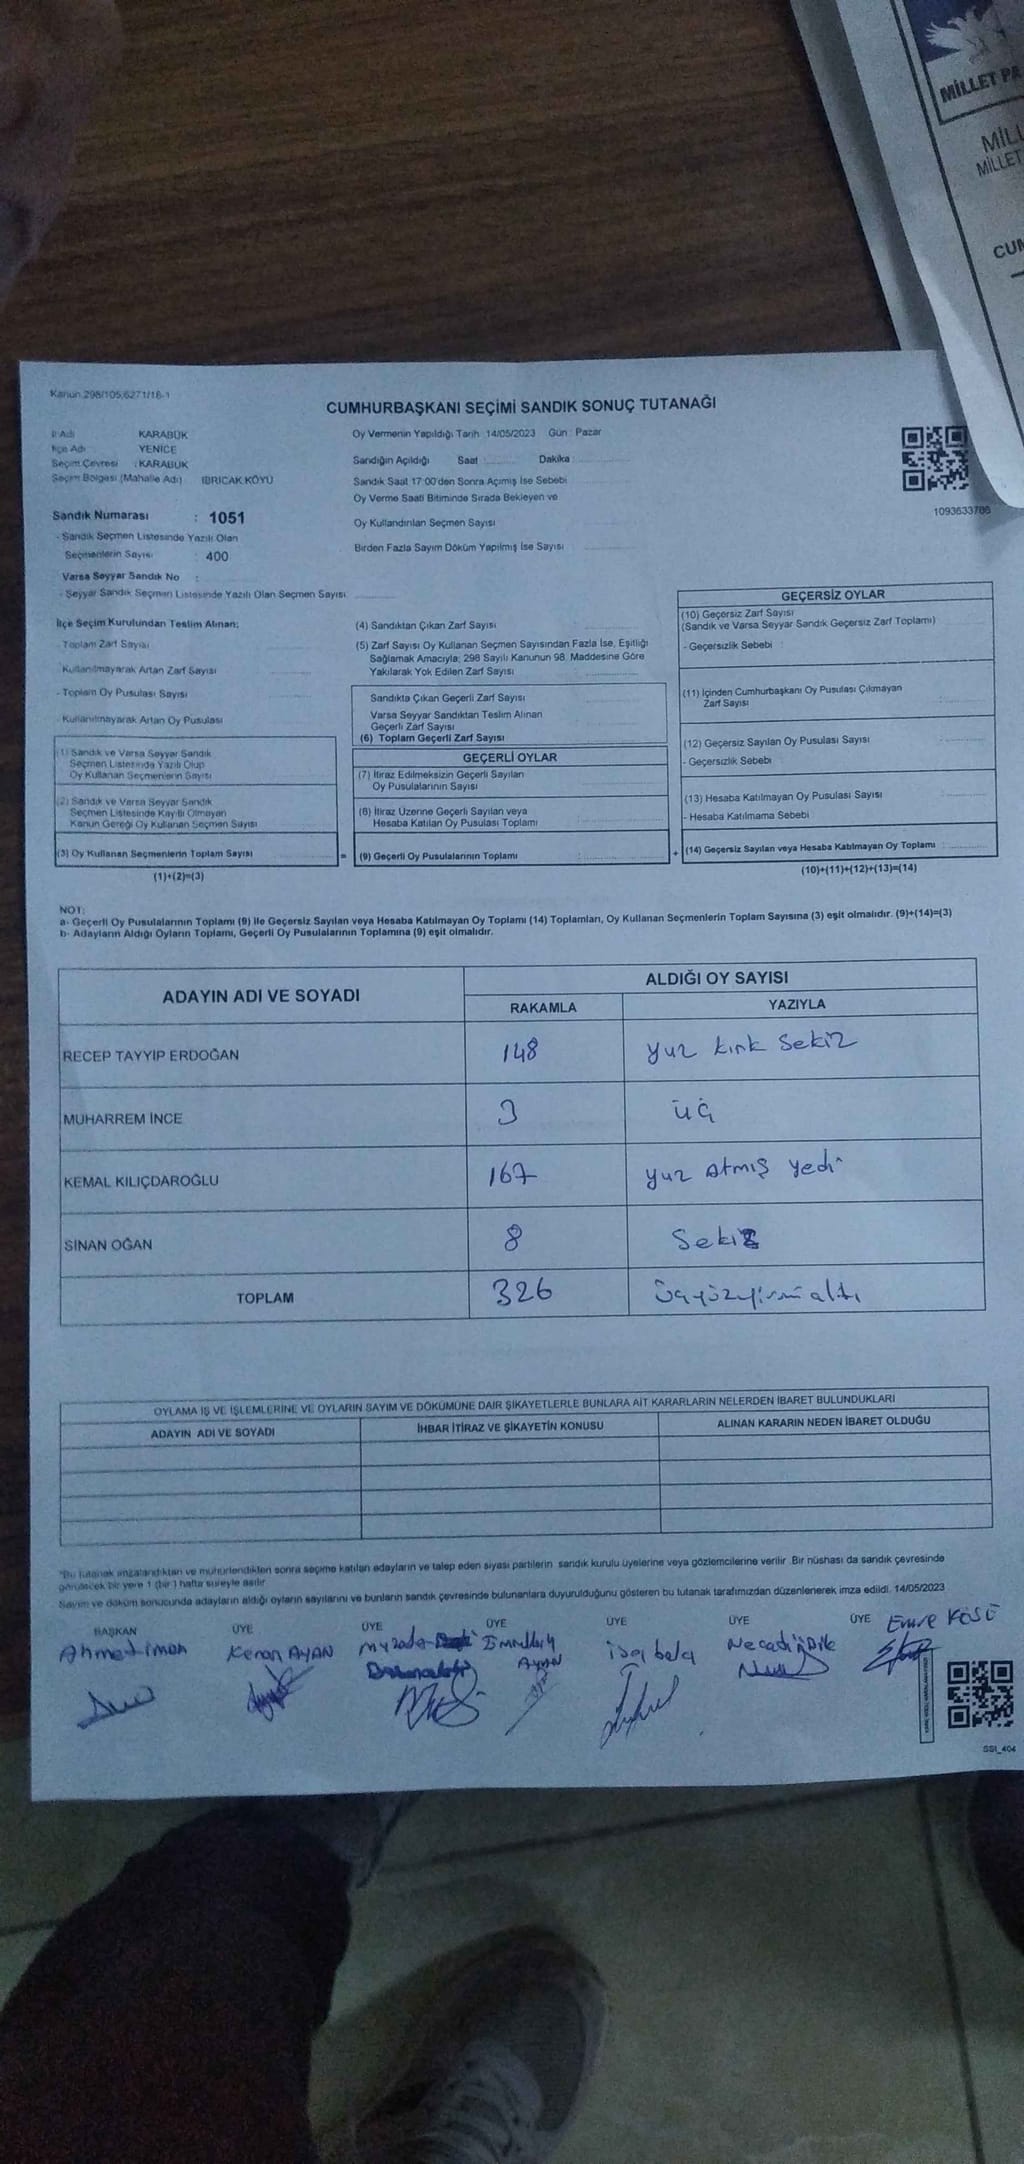 MİLLET PA
MİLL
MİLLET
CUM
Kanun 298/105,6271/16-1
CUMHURBAŞKANI SEÇİMİ SANDIK SONUÇ TUTANAĞI
İl Adı KARABÜK
İlçe Adı YENİCE
Seçim Çevresi : KARABÜK
Seçim Bölgesi (Mahalle Adı) IBRICAK KÖYÜ
Sandık Numarası : 1051
- Sandık Seçmen Listesinde Yazılı Olan
Seçmenlerin Sayısı : 400
Varsa Seyyar Sandık No :
- Seyyar Sandık Seçmen Listesinde Yazılı Olan Seçmen Sayısı
Oy Vermenin Yapıldığı Tarih 14/05/2023 Gün : Pazar
Sandığın Açıldığı Saat : Dakika :
Sandık Saat 17:00'den Sonra Açımış İse Sebebi
Oy Verme Saati Bitiminde Sırada Bekleyen ve
Oy Kullandırılan Seçmen Sayısı
Birden Fazla Sayım Döküm Yapılmış İse Sayısı
1093633786
İlçe Seçim Kurulundan Teslim Alınan;
- Toplam Zarf Sayısı
Kullanılmayarak Artan Zarf Sayısı
- Toplam Oy Pusulası Sayısı
- Kullanılmayarak Artan Oy Pusulası
(1) Sandık ve Varsa Seyyar Sandık
Seçmen Listesinde Yazılı Olup
Oy Kullanan Seçmenlerin Sayısı
(2) Sandık ve Varsa Seyyar Sandık
Seçmen Listesinde Kayıtlı Olmayan
Kanun Gereği Oy Kullanan Seçmen Sayısı
(3) Oy Kullanan Seçmenlerin Toplam Sayısı
(1)+(2)=(3)
(4) Sandıktan Çıkan Zarf Sayısı
(5) Zarf Sayısı Oy Kullanan Seçmen Sayısından Fazla İse, Eşitliği
Sağlamak Amacıyla; 298 Sayılı Kanunun 98. Maddesine Göre
Yakılarak Yok Edilen Zarf Sayısı
Sandıkta Çıkan Geçerli Zarf Sayısı
Varsa Seyyar Sandıktan Teslim Alınan
Geçerli Zarf Sayısı
(6) Toplam Geçerli Zarf Sayısı
GEÇERLİ OYLAR
(7) İtiraz Edilmeksizin Geçerli Sayılan
Oy Pusulalarının Sayısı
(8) İtiraz Üzerine Geçerli Sayılan veya
Hesaba Katılan Oy Pusulası Toplamı
= (9) Geçerli Oy Pusulalarının Toplamı
GEÇERSİZ OYLAR
(10) Geçersiz Zarf Sayısı
(Sandık ve Varsa Seyyar Sandık Geçersiz Zarf Toplamı)
- Geçersizlik Sebebi :
(11) İçinden Cumhurbaşkanı Oy Pusulası Çıkmayan
Zarf Sayısı
(12) Geçersiz Sayılan Oy Pusulası Sayısı
- Geçersizlik Sebebi
(13) Hesaba Katılmayan Oy Pusulası Sayısı
- Hesaba Katılmama Sebebi
+ (14) Geçersiz Sayılan veya Hesaba Katılmayan Oy Toplamı
(10)+(11)+(12)+(13)=(14)
NOT:
a- Geçerli Oy Pusulalarının Toplamı (9) ile Geçersiz Sayılan veya Hesaba Katılmayan Oy Toplamı (14) Toplamları, Oy Kullanan Seçmenlerin Toplam Sayısına (3) eşit olmalıdır. (9)+(14)=(3)
b- Adayların Aldığı Oyların Toplamı, Geçerli Oy Pusulalarının Toplamına (9) eşit olmalıdır.
ADAYIN ADI VE SOYADI ALDIĞI OY SAYISI
RAKAMLA YAZIYLA
RECEP TAYYİP ERDOĞAN 148 yuz kırk sekiz
MUHARREM İNCE 3 üç
KEMAL KILIÇDAROĞLU 167 yuz atmış yedi
SİNAN OĞAN 8 sekiz
TOPLAM 326 üçyüzyirmialtı
OYLAMA İŞ VE İŞLEMLERİNE VE OYLARIN SAYIM VE DÖKÜMÜNE DAİR ŞİKAYETLERLE BUNLARA AİT KARARLARIN NELERDEN İBARET BULUNDUKLARI
ADAYIN ADI VE SOYADI İHBAR İTİRAZ VE ŞİKAYETİN KONUSU ALINAN KARARIN NEDEN İBARET OLDUĞU
*Bu tutanak imzalandıktan ve mühürlendikten sonra seçime katılan adayların ve talep eden siyasi partilerin sandık kurulu üyelerine veya gözlemcilerine verilir. Bir nüshası da sandık çevresinde
görülecek bir yere 1 (bir) hafta süreyle asılır
Sayım ve döküm sonucunda adayların aldığı oyların sayılarını ve bunların sandık çevresinde bulunanlara duyurulduğunu gösteren bu tutanak tarafımızdan düzenlenerek imza edildi. 14/05/2023
BAŞKAN ÜYE ÜYE ÜYE ÜYE ÜYE ÜYE Emre KÖSE
Ahmet iman Kenan AYAN Emrullah isa bela Necati
Ayan
SSI_404